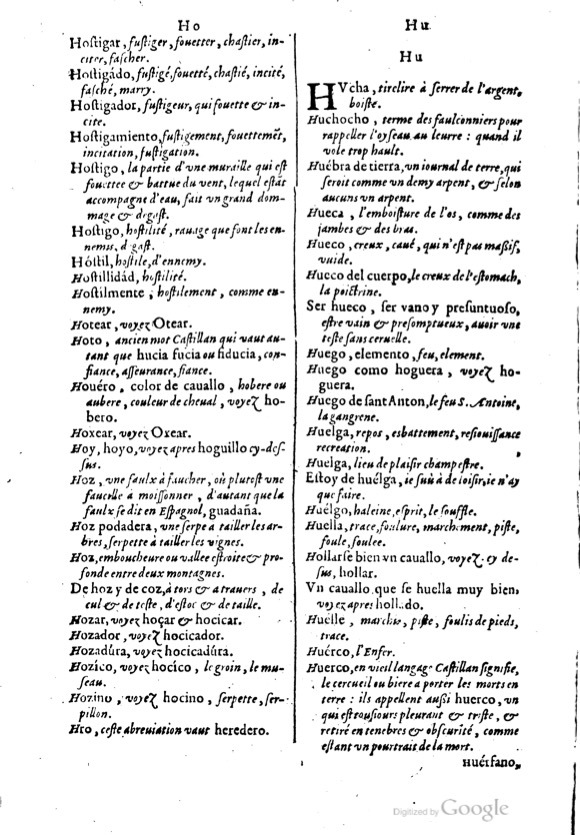 Ho
Hoſtigar, fuſtiger, fouetter, chaſtier, in-
citer, faſcher.
Hoſtigádo, fuſtigé, fouetté, chaſtié, incité,
faſché, marry.
Hoſtigador, fuſtigeur, qui fouette & in-
cite.
Hoſtigamiento, fuſtigement, fouettemẽt,
incitation, fuſtigation.
Hoſtigo, la partie d'vne muraille qui eſt
fouettee & battue du vent, lequel eſtãt
accompagne d'eau, fait vn grand dom-
mage & degaſt.
Hoſtigo, hoſtilité, rauage que font les en-
nemis, degaſt.
Hóſtil, hoſtile, d'ennemy.
Hoſtillidád, hoſtilité.
Hoſtilmente, hoſtilement, comme en-
nemy.
Hotear, voyez Otear.
Hoto, ancien mot Caſtillan qui vaut au-
tant que hucia fucia ou fiducia, con-
fiance, aſſeurance, fiance.
Houéro, color de cauallo, hobere ou
aubere, couleur de cheual, voyez ho-
bero.
Hoxear, voyez Oxear.
Hoy, hoyo, voyez apres hoguillo cy-deſ-
ſus.
Hoz, vne faulx à faucher, où plutoſt vne
faucille a moiſſonner, d'autant que la
faulx ſe dit en Eſpagnol, guadaña.
Hoz podadera, vne ſerpe a tailler les ar-
bres, ſerpette à tailler les vignes.
Hoz, emboucheure ou vallee eſtroite & pro-
fonde entre deux montagnes.
De hoz y de coz, à tors & a trauers, de
cul & de teſte, d'eſtoc & de taille.
Hozar, voyez hoçar & hocicar.
Hozador, voyez hocicador.
Hozadúra, voyez hocicadúra.
Hozíco, voyez hocíco, le groin, le mu-
ſeau.
Hozino, voyez hocino, ſerpette, ſer-
pillon.
Hro, ceſte abreuiation vaut heredero.
Hu
Hu
HVcha, tirelire à ſerrer de l'argent,
boiſte.
Huchocho, terme des faulconniers pour
rappeller l'oyſeau au leurre : quand il
vole trop hault.
Huébra de tierra, vn iournal de terre, qui
ſeroit comme vn demy arpent, & ſelon
aucuns vn arpent.
Hueca, l'emboiſture de l'os, comme des
jambes & des bras.
Hueco, creux, caué, qui n'eſt pas maſſif,
vuide.
Hueco del cuerpo, le creux de l'eſtomach,
la poictrine.
Ser hueco, ſer vano y preſuntuoſo,
eſtre vain & preſomptueux, auoir vne
teſte ſans ceruelle.
Huego, elemento, feu, element.
Huego como hoguera, voyez ho-
guera.
Huego de ſant Anton, le feu S. Antoine,
la gangrene.
Huelga, repos, esbattement, reſiouiſſance
recreation.
Huelga, lieu de plaiſir champeſtre.
Eſtoy de huélga, ie ſuis à de loiſir, ie n'ay
que faire.
Huélgo, haleine, eſprit, le ſouffle.
Huella, trace, foulure, marchement, piſte,
foule, foulee.
Hollarſe bien vn cauallo, voyez cy de-
ſus, hollar.
Vn cauallo que ſe huella muy bien,
voyez apres hollado.
Huelle, marche, piſte, foulis de pieds,
trace.
Huérco, l'Enfer.
Huerco, en vieil langage Caſtillan ſignifie,
le cercueil ou biere a porter les morts en
terre : ils appellent auſſi huerco, vn
qui eſt touſiours pleurant & triſte, &
retiré en tenebres & obſcurité, comme
eſtant vn pourtrait de la mort.
Huérfano,
Digitized by Google